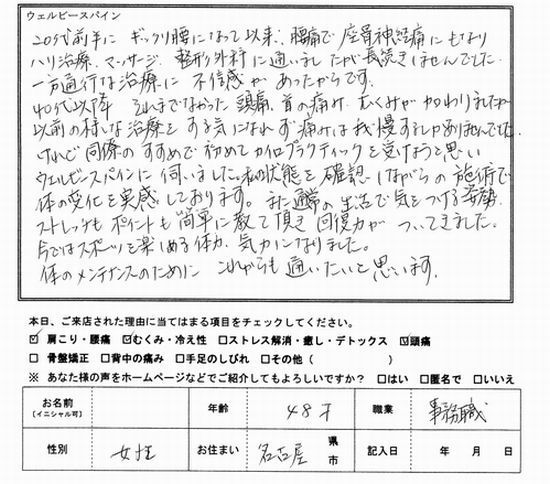 ウェルビースパイン
20代前半に ギックリ腰になって以来、腰痛で座骨神経痛にもなり
ハリ治療、マッサージ、整形外科に通いましたが長続きしませんでした。
一方通行な治療に 不信感があったからです。
40代以降 それまでなかった頭痛、首の痛み、むくみが加わりましたが
以前の様な治療をする気になれず痛みは我慢するしかありませんでした。
けれど同僚のすすめで初めてカイロプラクティックを受けようと思い
ウェルビースパインに伺いました。私の状態を確認しながらの施術で
体の変化を実感しております。また通常の生活で気をつける姿勢
ストレッチもポイントも簡単に教えて頂き回復力がついてきました。
今ではスポーツを楽しめる体力、気力になりました。
体のメンテナンスのために これからも通いたいと思います。
本日、ご来店された理由に当てはまる項目をチェックしてください。
☑ 肩こり・腰痛 ☑むくみ・冷え性 □ストレス解消・癒し・デトックス ☑頭痛
□ 骨盤矯正 □背中の痛み □手足のしびれ □その他（ ）
※ あなた様の声をホームページなどでご紹介してもよろしいですか？ □はい □匿名で □いいえ
お名前 (イニシャル可) 年齢 48才 職業 事務職
性別 女性 お住まい 名古屋 県 市 記入日 年 月 日